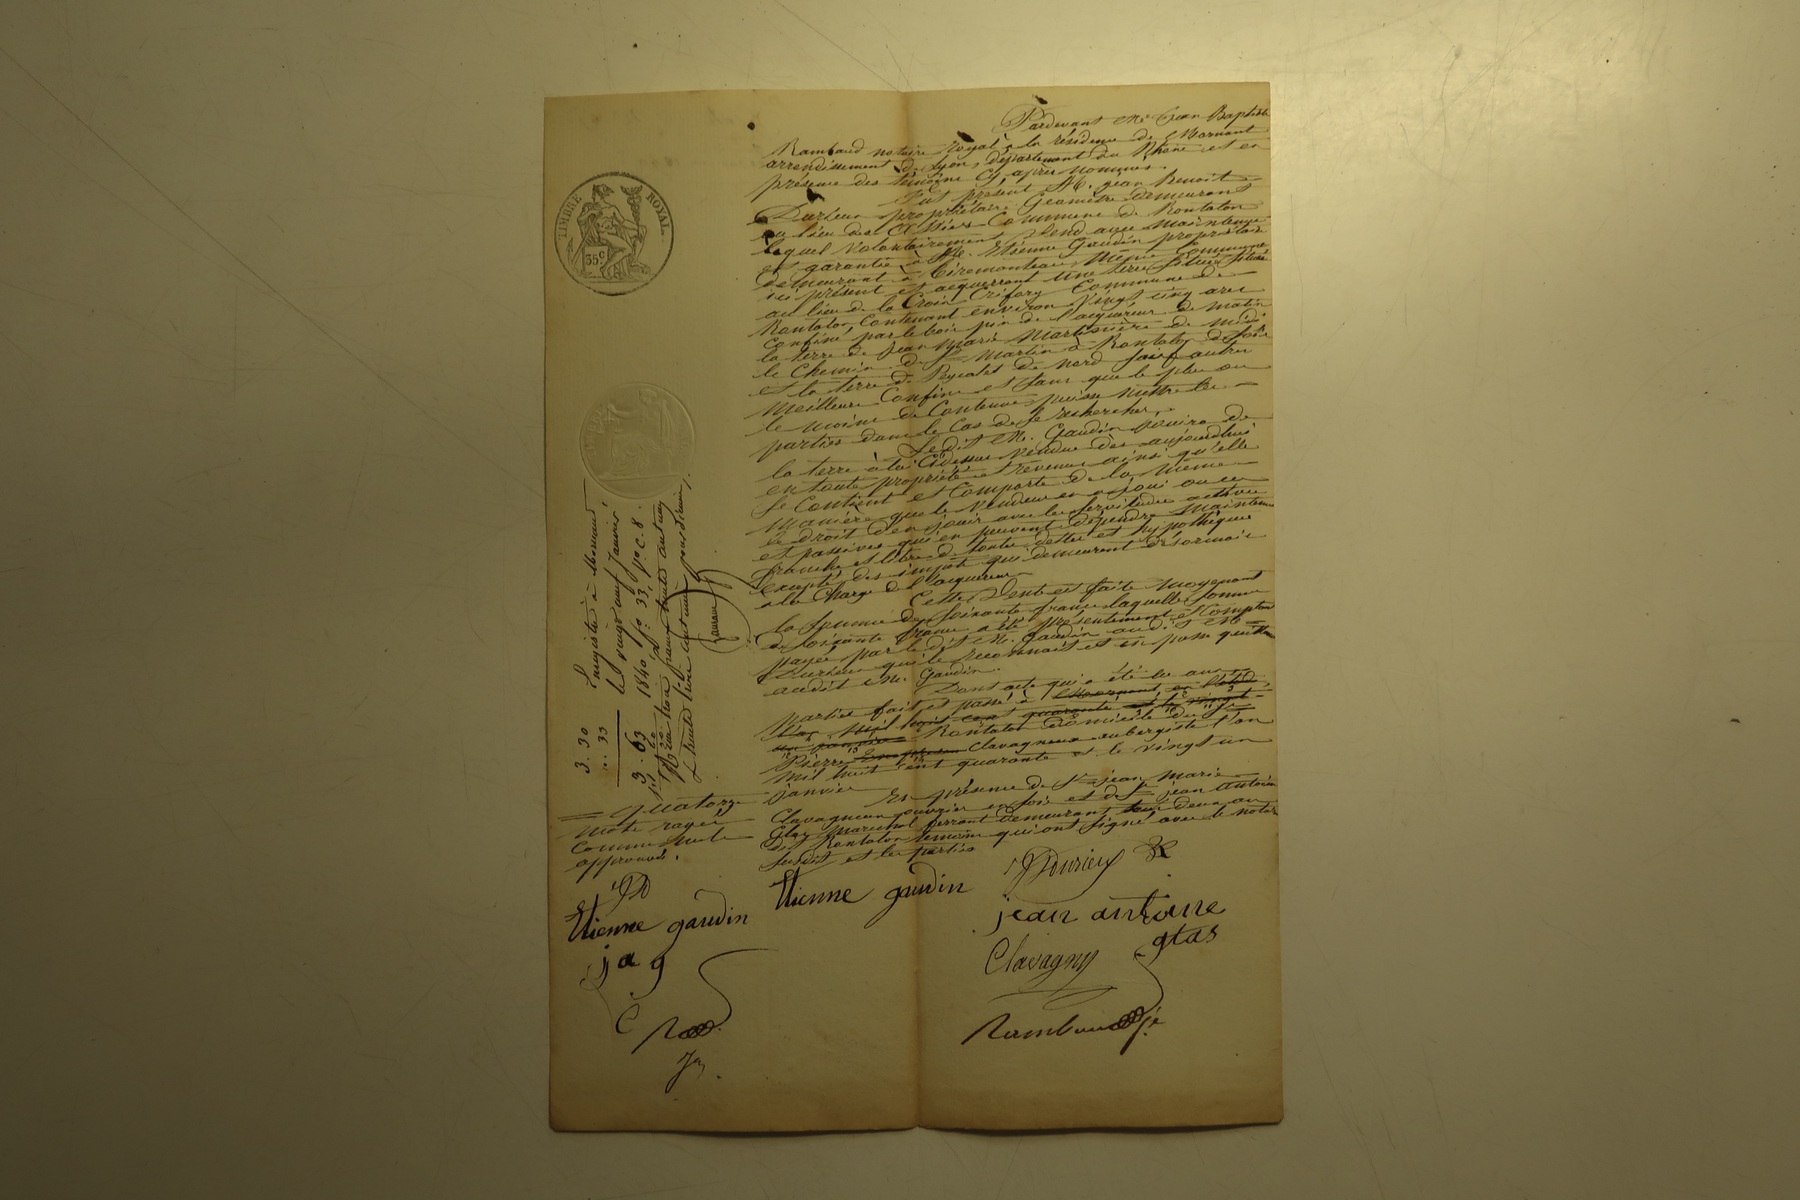 TIMBRE ROYAL
35 c
Pardevant Me Jean Baptiste
Rambaud notaire Royal à la résidence de Mornant
arrondissement de Lyon, département du Rhône et en
présence des témoins cy après nommés.
Fut présent M. jean Benoit
Durieux propriétaire Géomètre demeurant
au lieu des Commune de Rontalon
lequel volontairement Vend avec Maintenue
et garantie à M. Etienne Gaudin propriétaire
demeurant à Même Commune
ici présent et acquerrant Une terre située
au lieu de la Croix Commune de
Rontalon, Contenant environ Vingt cinq ares
Confiné par le bois pin de l'acquéreur de matin
la terre de Jean Marie Martinière de midi
le Chemin de St Martin à Rontalon de soir
et la terre de de nord sauf autres
Meilleurs Confins et sans que le plus ou
le moins de Contenue puisse mettre les
parties dans le Cas de se rechercher.
Ledit M. Gaudin jouira de
la terre à lui Cidessus Vendue dès aujourdhui
en toute propriété et revenus ainsi qu'elle
se Contient et Comporte de la même
Manière que le Vendeur en a joui ou eu
le droit d'en jouir avec les servitudes actives
et passives qui en peuvent dépendre Maintenue
franche et libre de toutes dettes et hypothèques
excepté des impôts qui demeurent désormais
à la Charge de l'acquéreur
Cette Vente est faite Moyennant
la somme de Soixante francs laquelle somme
de soixante francs a été présentement Comptant
payée par le dit M. Gaudin au dit M
Durieux qui le reconnait et en passe quittance
audit M. Gaudin.
Dont acte qui a été lu aux
parties fait et passé à Mornant en l'Etude
l'an Mil huit cent quarante et le vingt
un janvier Rontalon Domicile du Sr
Pierre Clavagneux aubergiste l'an
Mil huit cent quarante et le vingt un
janvier
En présence de Sr jean Marie
Clavagneux ouvrier en soie et de Sr jean Antoine
Glas Maréchal ferrant demeurant tous deux au
dit Rontalon témoins qui ont signé avec le notaire
susdit et les parties
Etienne gaudin
JBDurieux
jean antoine
glas
Clavagny
Rambaud je
Enregistré à Mornant
le vingt neuf Janvier
1840 fo 33, ro c. 8.
3. 30
.. 33
3. 63
= quatorze
mots rayés
comme nuls
approuvés.
JBD
Etienne gaudin
j a g
C